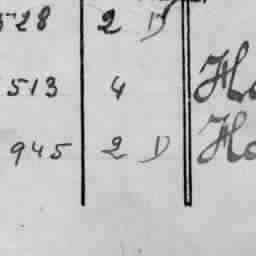 528 2 D
513 4 Ho
945 2 D Ho